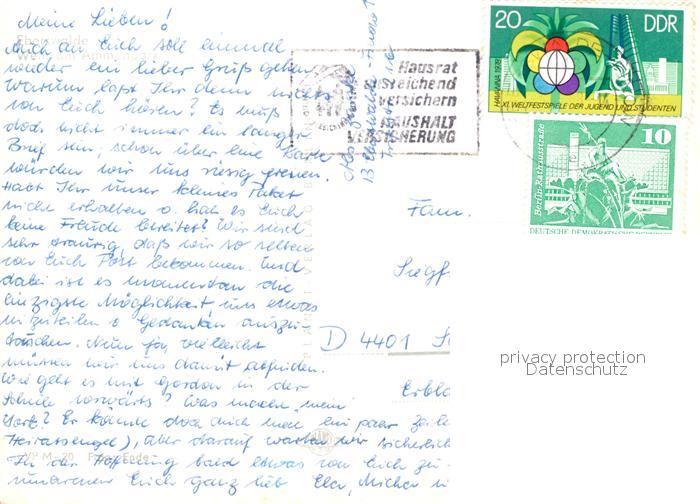 Meine Lieben!
Auch an Euch soll einmal
wieder ein lieber Gruß gehen.
Warum laßt Ihr denn nichts
von Euch hören? Es muß
doch nicht immer ein langer
Brief sein, schon über eine Karte
würden wir uns riesig freuen.
Habt Ihr unser kleines Paket
nicht erhalten o. hat es Euch
keine Freude bereitet? Wir sind
sehr traurig, daß wir so selten
von Euch Post bekommen. Und
dabei ist es momentan die
einzigste Möglichkeit uns etwas
mitzuteilen o. Gedanken auszu-
tauschen. Nun ja, vielleicht
müssen wir uns damit abfinden.
Wie geht es mit Gordon in der
Schule vorwärts? Was macht "mein"
? Er könnte doch auch mal ein paar Zeilen
, aber darauf warten wir sicherlich
In der Hoffnung bald etwas von Euch zu
umarmen Euch ganz lieb
Eberswalde
V M - 20
Hausrat
ausreichend
versichern
HAUSHALT
VERSICHERUNG
20 DDR
HAVANNA 1978
XI. WELTFESTSPIELE DER JUGEND UND STUDENTEN
10
Berlin-Rathausstraße
DEUTSCHE DEMOKRATISCHE
Fam.
Siegf
D 4401
privacy protection
Datenschutz